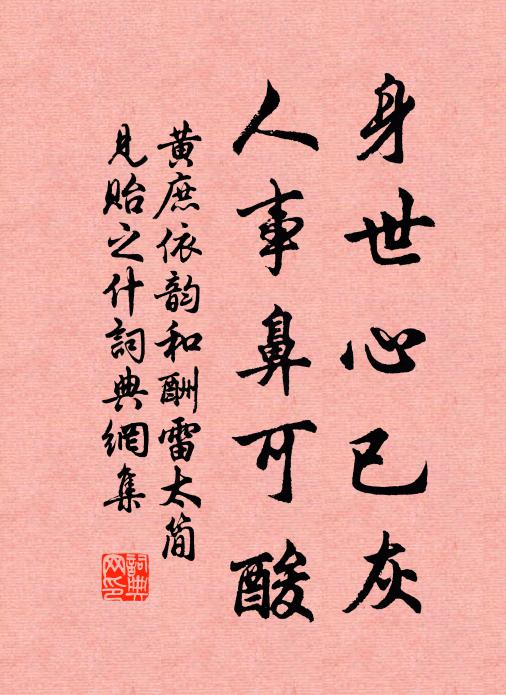 身世心已灰
人事鼻可酸
黄庶依韵和酬雷太简
見貽之什詞典網集
詞典網印